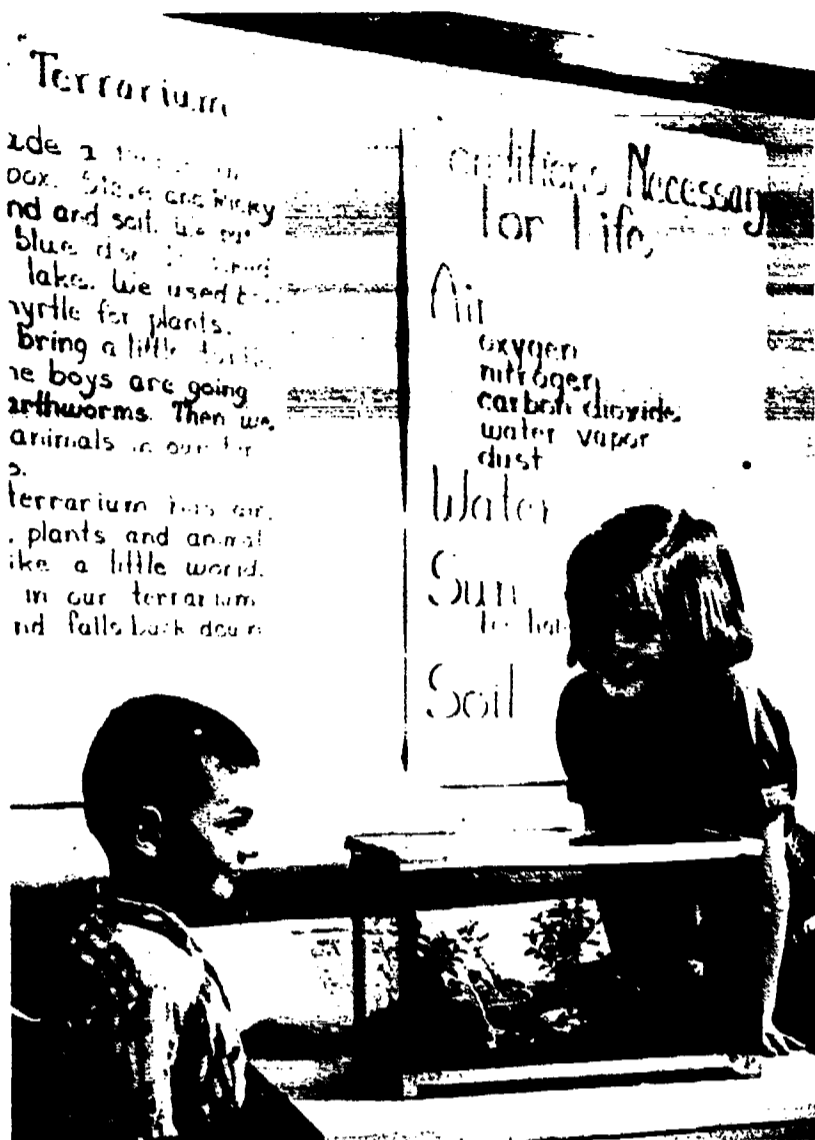 Terrarium
ade a
box. Steve and Ricky
nd and soil. We put
blue
lake. We used
myrtle for plants.
bring a little
he boys are going
arthworms. Then we
animals in our
s.
terrarium has air,
, plants and animal
ike a little world.
in our terrarium
nd falls back down
onditions Necessary
for Life
Air
oxygen
nitrogen
carbon dioxide
water vapor
dust
Water
Sun
Soil